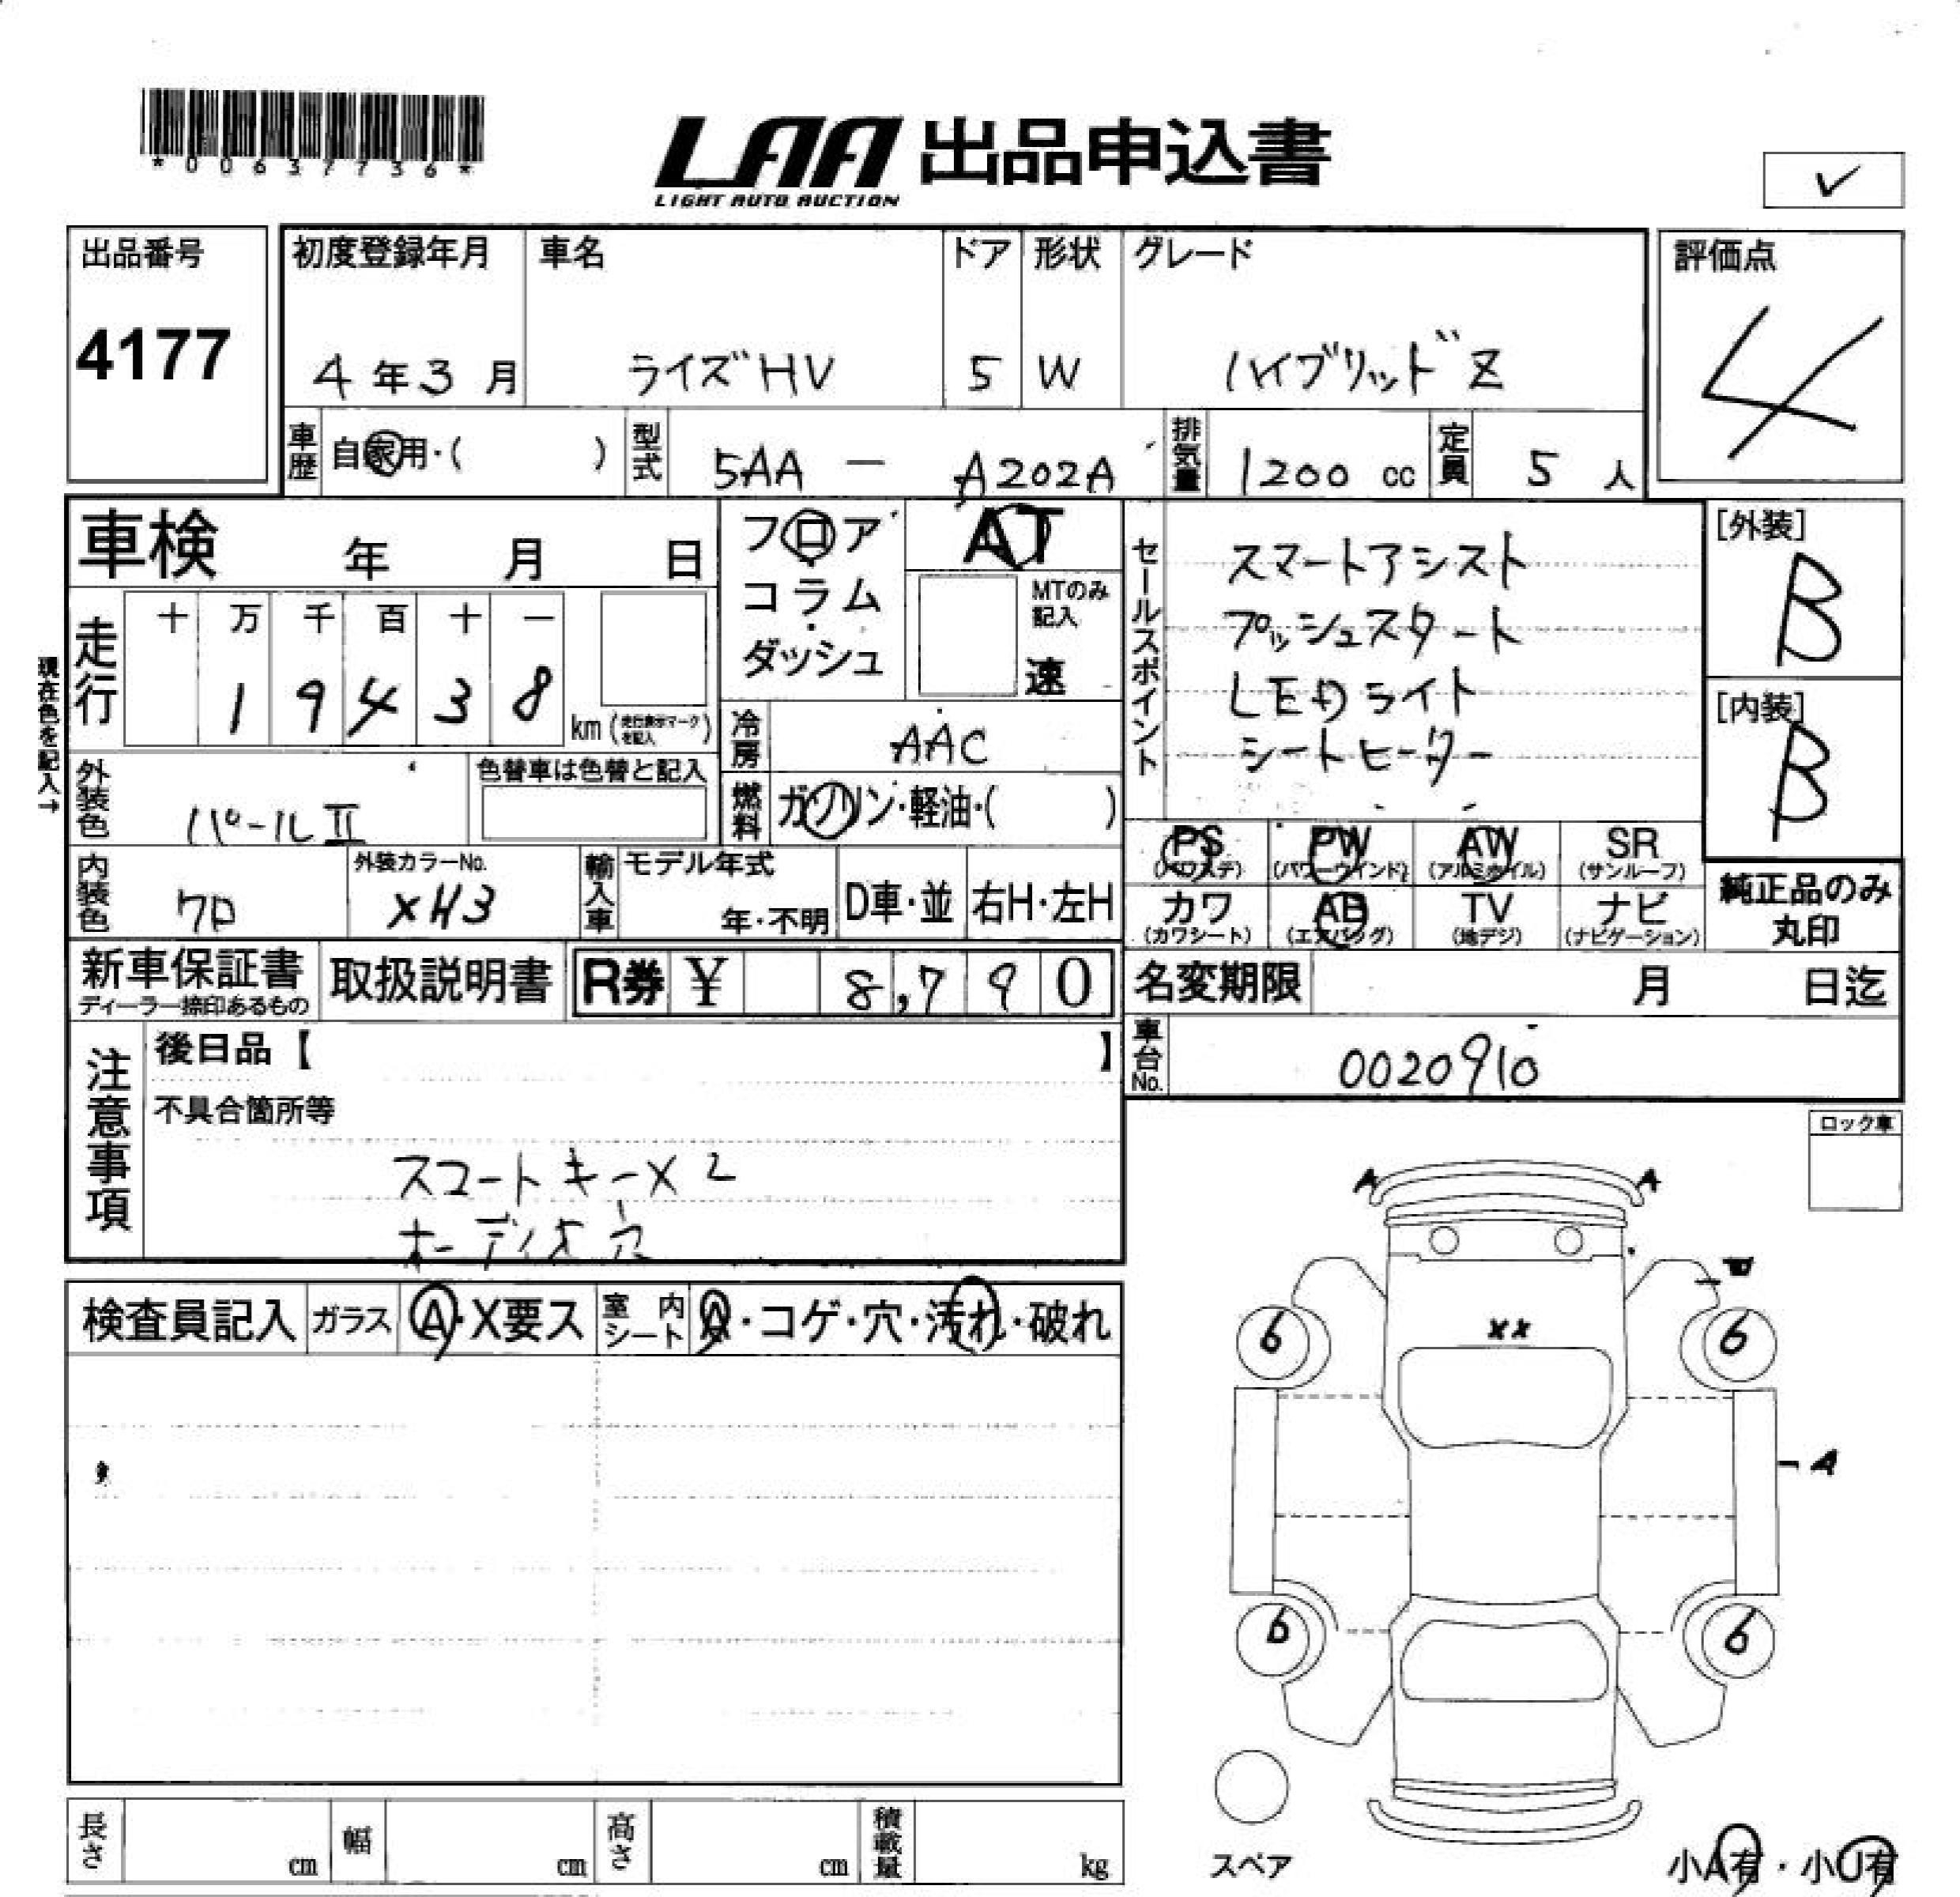 *00637736*
LAA 出品申込書
LIGHT AUTO AUCTION
✓
出品番号 4177
初度登録年月 4年3月
車名 ライズHV
ドア 5
形状 W
グレード ハイブリッドZ
評価点 4
車歴 自家用・( )
型式 5AA - A202A
排気量 1200 cc
定員 5 人
車検 年 月 日
フロア
コラム
ダッシュ
AT
MTのみ記入
速
セールスポイント
スマートアシスト
プッシュスタート
LEDライト
シートヒーター
[外装] B
[内装] B
現在色を記入→
走行 十 万 千 百 十 一
1 9 4 3 8 km (走行表示マークを記入)
冷房 AAC
外装色 パールII
色替車は色替と記入
燃料 ガソリン・軽油・( )
PS (パワステ) PW (パワーウインド) AW (アルミホイル) SR (サンルーフ)
カワ (カワシート) AB (エアバッグ) TV (地デジ) ナビ (ナビゲーション)
純正品のみ丸印
内装色 クロ
外装カラーNo. XH3
輸入車 モデル年式 年・不明 D車・並 右H・左H
新車保証書
ディーラー捺印あるもの
取扱説明書
R券 ¥ 8,790
名変期限 月 日迄
車台No. 0020910
注意事項
後日品【 】
不具合箇所等
スマートキーX2
オーディオ穴
ロック車
検査員記入 ガラス A・X要ス 室内シート A・コゲ・穴・汚れ・破れ
A A
XX
6 6
A
6 6
スペア
小A有・小U有
長さ cm 幅 cm 高さ cm 積載量 kg